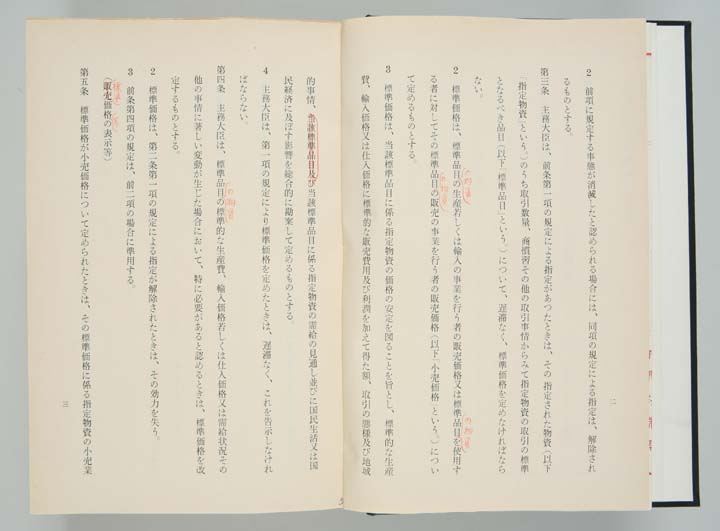 2　前項に規定する事態が消滅したと認められる場合には、同項の規定による指定は、解除され
るものとする。
第三条　主務大臣は、前条第一項の規定による指定があつたときは、その指定された物資（以下
「指定物資」という。）のうち取引数量、商慣習その他の取引事情からみて指定物資の取引の標準
となるべき品目（以下「標準品目」という。）について、遅滞なく、標準価格を定めなければなら
ない。
2　標準価格は、標準品目の生産若しくは輸入の事業を行う者の販売価格又は標準品目を使用す
る者に対してその標準品目の販売の事業を行う者の販売価格（以下「小売価格」という。）につい
て定めるものとする。
3　標準価格は、当該標準品目に係る指定物資の価格の安定を図ることを旨とし、標準的な生産
費、輸入価格又は仕入価格に標準的な販売費用及び利潤を加えて得た額、取引の態様及び地域
二
的事情、当該標準品目及び当該標準品目に係る指定物資の需給の見通し並びに国民生活又は国
民経済に及ぼす影響を総合的に勘案して定めるものとする。
4　主務大臣は、第一項の規定により標準価格を定めたときは、遅滞なく、これを告示しなけれ
ばならない。
第四条　主務大臣は、標準品目の標準的な生産費、輸入価格若しくは仕入価格又は需給状況その
他の事情に著しい変動が生じた場合において、特に必要があると認めるときは、標準価格を改
定するものとする。
2　標準価格は、第二条第一項の規定による指定が解除されたときは、その効力を失う。
3　前条第四項の規定は、前二項の場合に準用する。
（販売価格の表示等）
第五条　標準価格が小売価格について定められたときは、その標準価格に係る指定物資の小売業
三